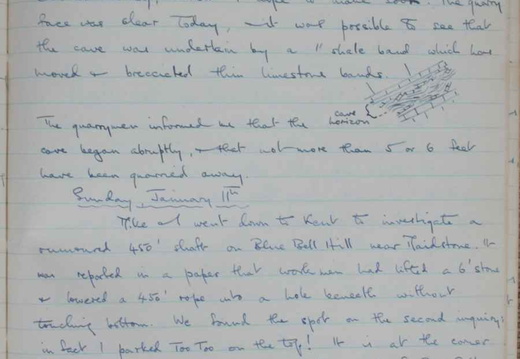 The quarry
face was clear today, & it was possible to see that
the cave was underlain by a 1" shale band which has
moved & brecciated thin limestone bands.
cave
horizon
The quarrymen informed me that the
cave began abruptly, & that not more than 5 or 6 feet
have been quarried away.
Sunday, January 11th
Mike & I went down to Kent to investigate a
rumoured 450' shaft on Blue Bell Hill near Maidstone. It
was reported in a paper that workmen had lifted a 6' stone
& lowered a 450' rope into a hole beneath without
touching bottom. We found the spot on the second inquiry;
in fact I parked Too Too on the top! It is at the corner